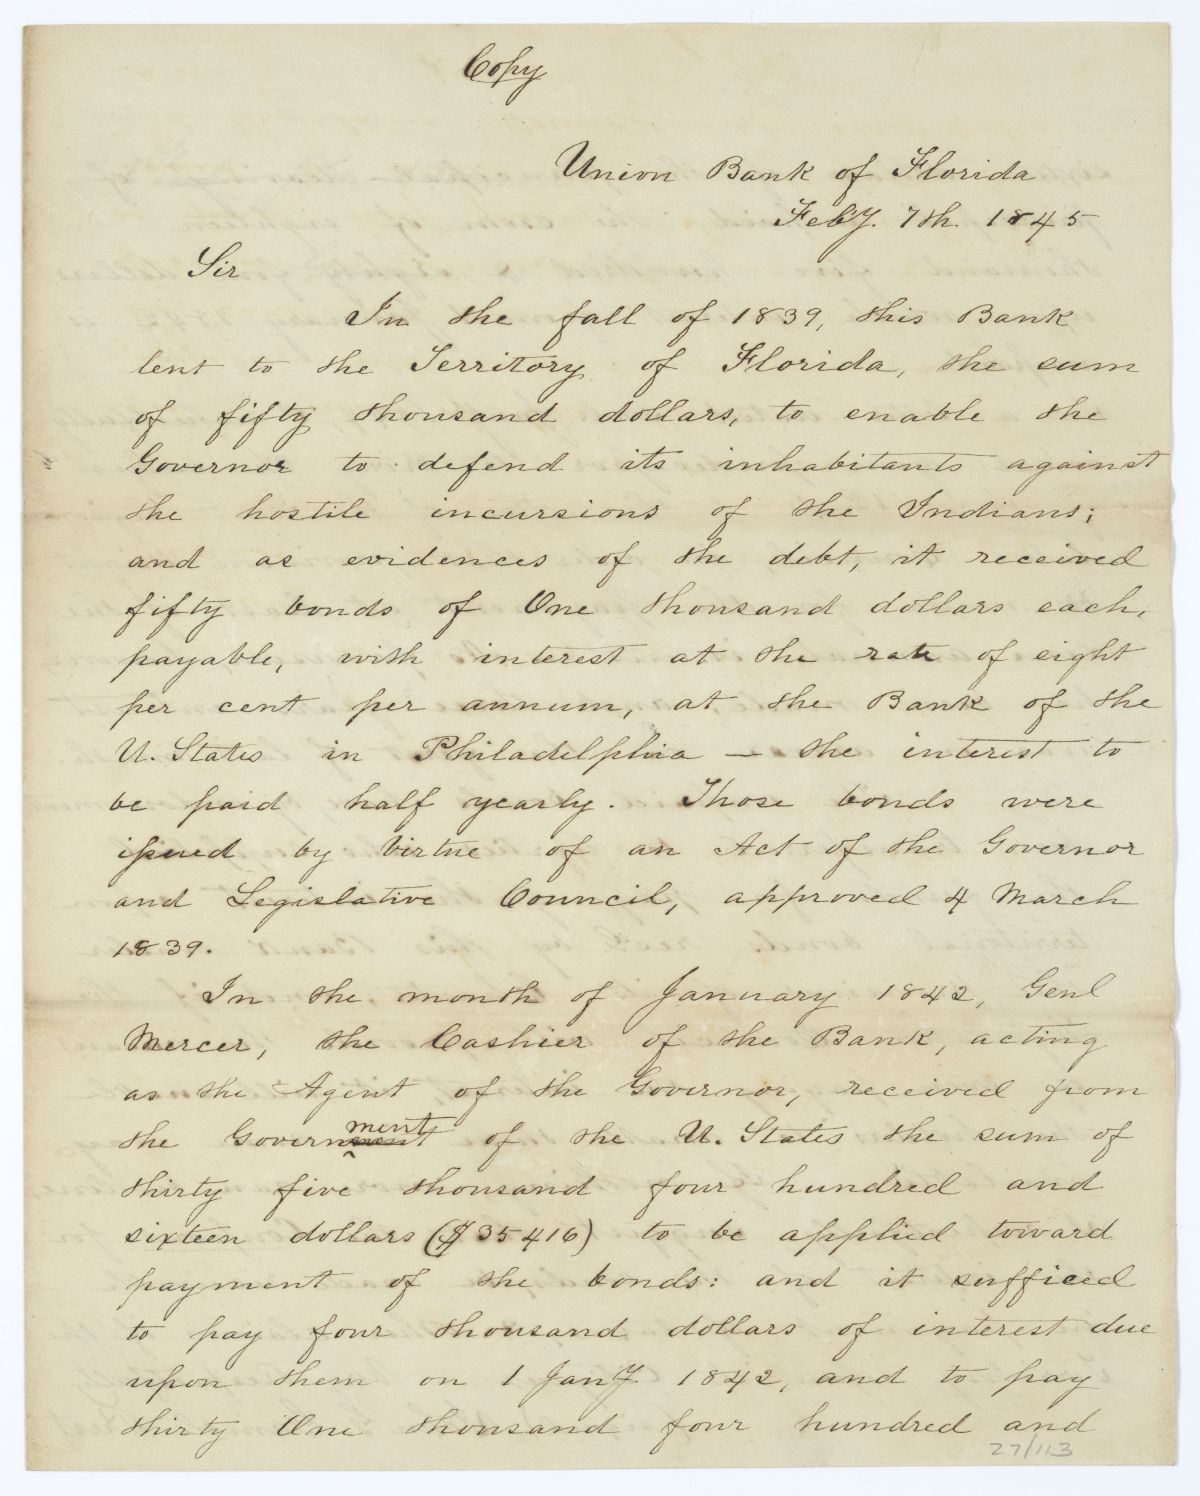 Copy
Union Bank of Florida
Feby. 7th. 1845
Sir
In the fall of 1839, this Bank
lent to the Territory of Florida, the sum
of fifty thousand dollars, to enable the
Governor to defend its inhabitants against
the hostile incursions of the Indians;
and as evidences of the debt, it received
fifty bonds of One thousand dollars each,
payable, with interest at the rate of eight
per cent per annum, at the Bank of the
U. States in Philadelphia — the interest to
be paid half yearly. Those bonds were
issued by Virtue of an Act of the Governor
and Legislative Council, approved 4 March
1839.
In the month of January 1842, Genl
Mercer, the Cashier of the Bank, acting
as the Agent of the Governor, received from
the Government of the U. States the sum of
thirty five thousand four hundred and
sixteen dollars ($35416) to be applied toward
payment of the bonds: and it sufficed
to pay four thousand dollars of interest due
upon them on 1 Jany 1842, and to pay
thirty One thousand four hundred and
27/113